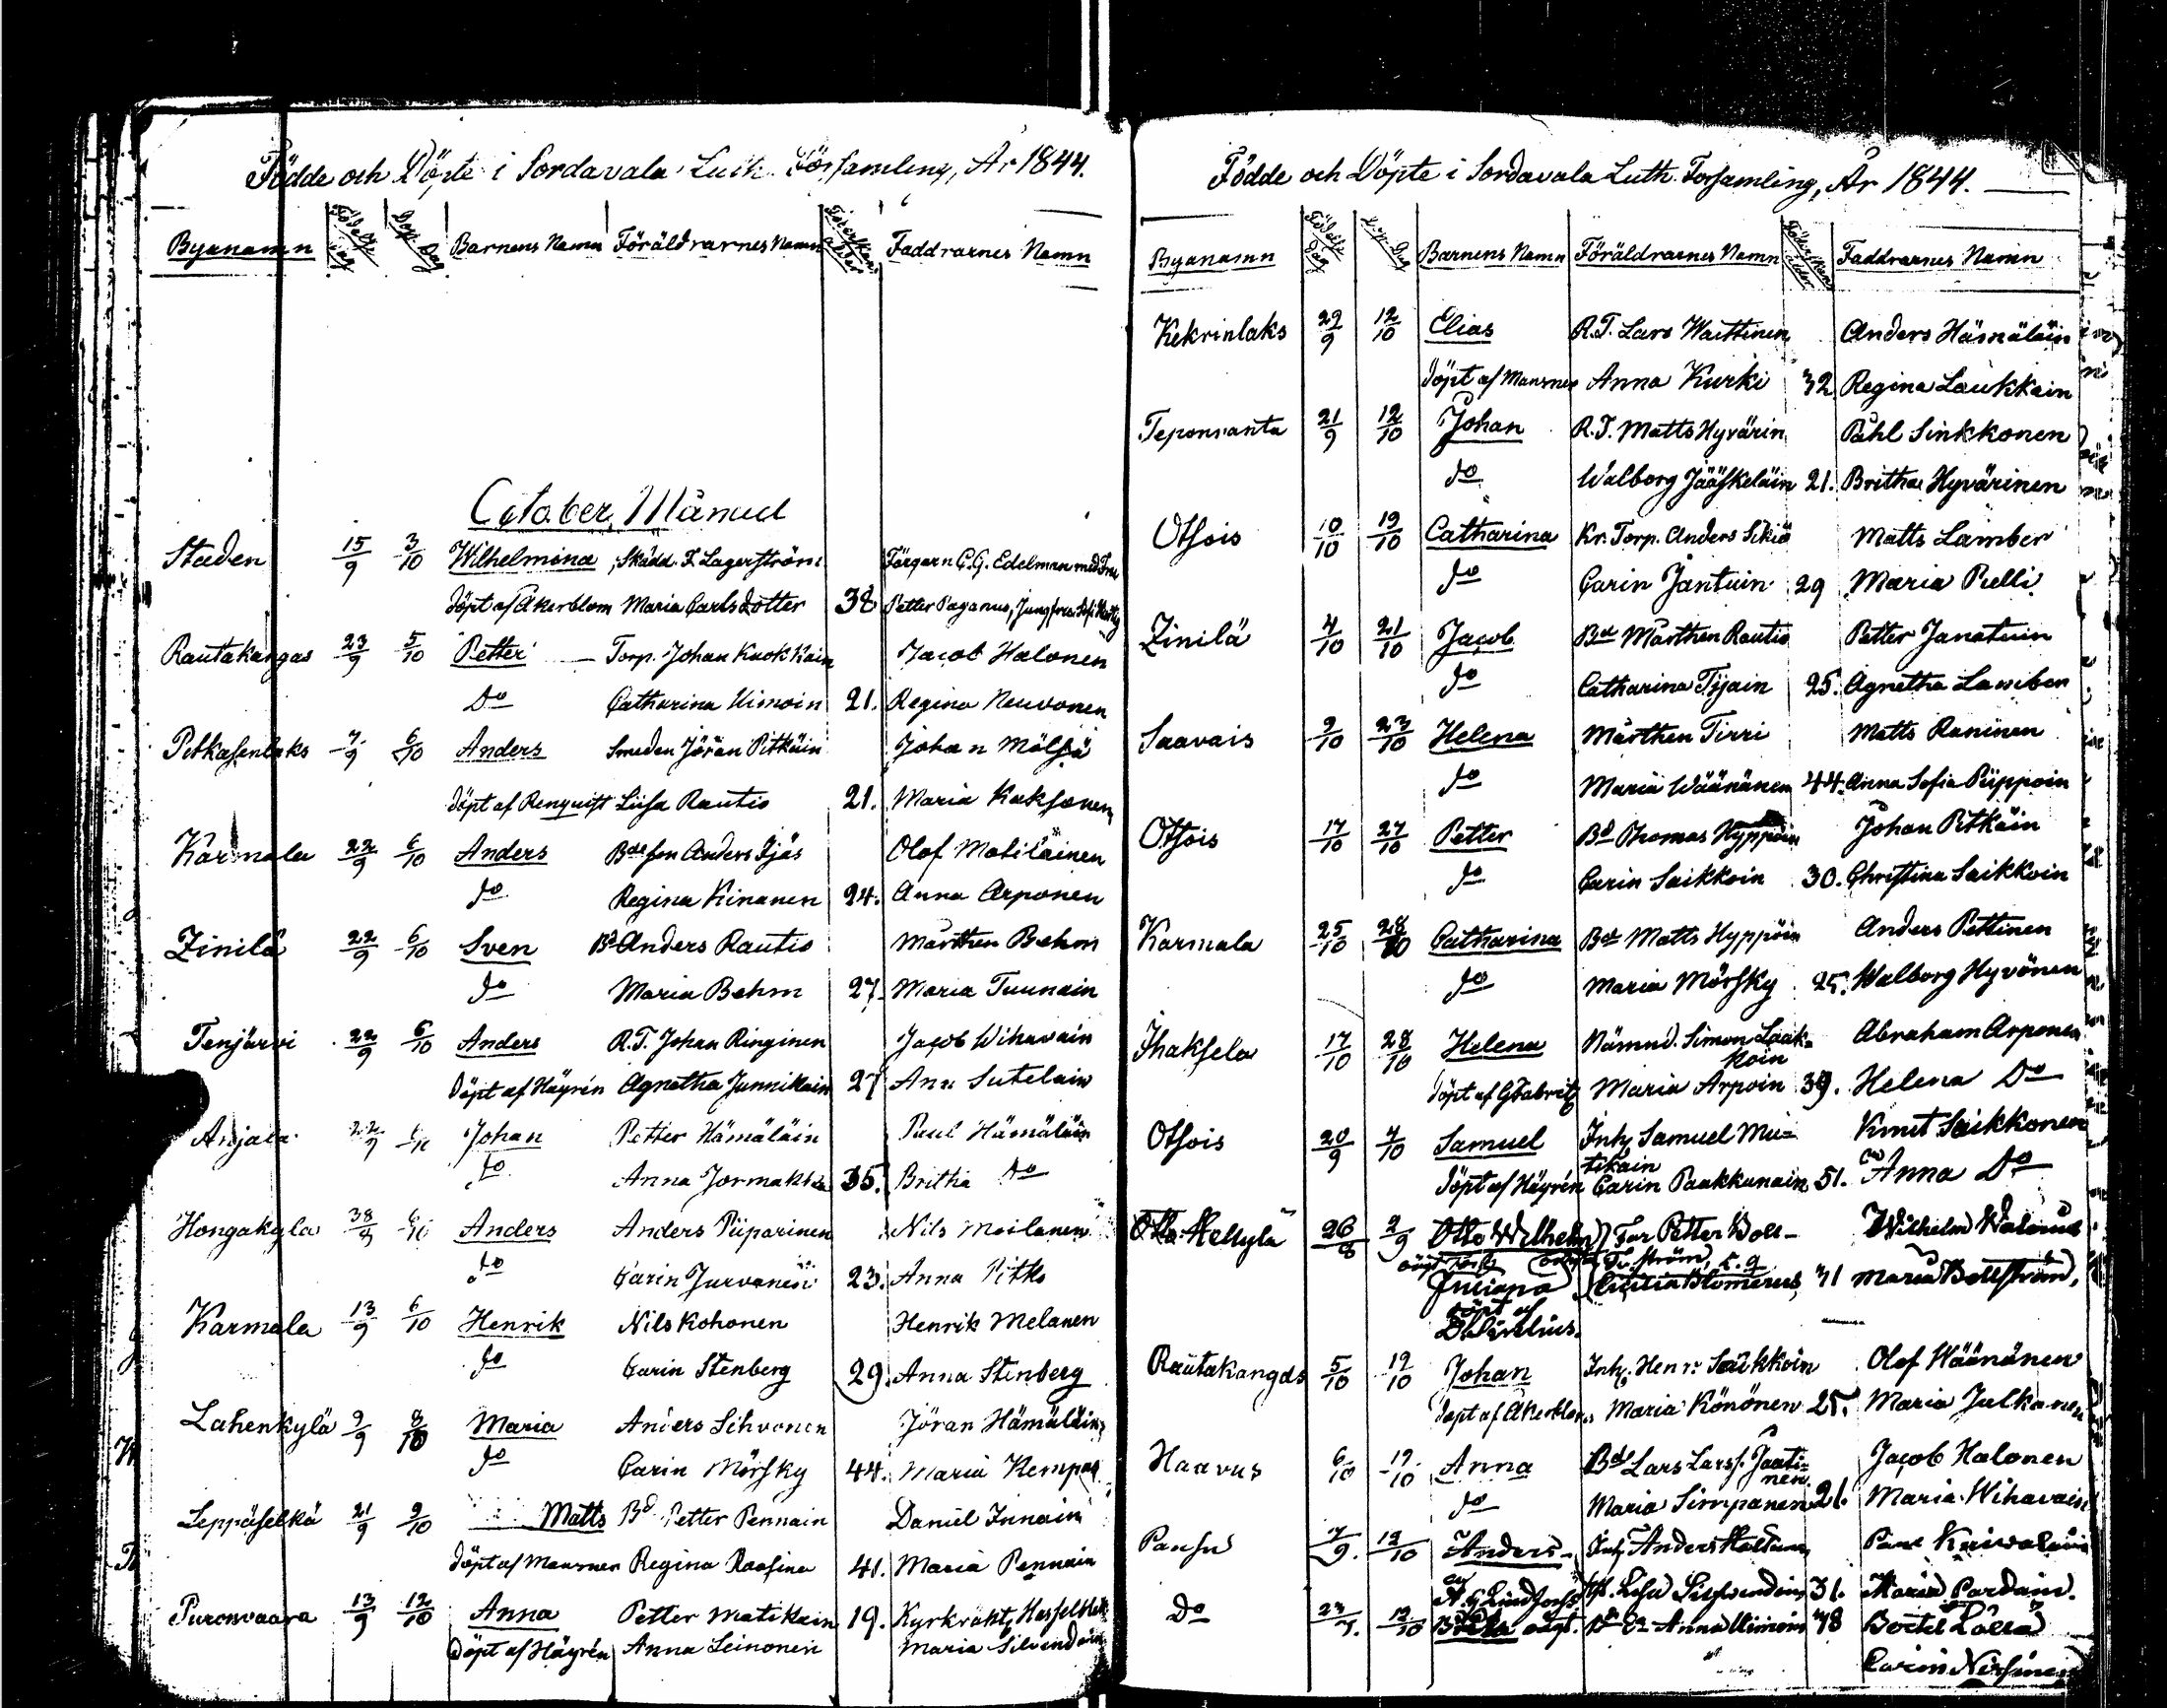 Födde och Döpte i Sordavala Luth. Församling, År 1844.
Byanamn Födelse Dag Döp. Dag Barnens Namn Föräldrarnes Namn Föderskans ålder Faddrarnes Namn
October Månad
Staden 15/9 3/10 Wilhelmina Skädd. F. Lagerström Färgarn C.G. Edelman med Fru
döpt af Åkerblom Maria Carlsdotter 38 Petter Paganus, Jungfru
Rautakangas 23/9 5/10 Petter Torp. Johan Kuokkain Jacob Halonen
Do Catharina Kimoin 21. Regina Neuvonen
Pitkasenlaks 7/9 6/10 Anders Smeden Jöran Pitkäin Johan Mölsä
döpt af Renquist Liisa Rautio 21. Maria Kuksonen
Karmala 22/9 6/10 Anders Bdeson Anders Ijäs Olof Matiläinen
do Regina Kinanen 24. Anna Arponen
Zinilä 22/9 6/10 Sven Bd Anders Rautio Mårthen Behm
do Maria Behm 27. Maria Tuunain
Tenjärvi 22/9 6/10 Anders R.T. Johan Ringinen Jacob Wihavain
döpt af Häyrén Agnetha Junnikain 27 Ann Sutelain
Anjala 22/9 Johan Petter Hämäläin Paul Hämäläin
do Anna Jormakka 35. Britha Do
Hongakyla Anders Anders Piiparinen Nils Moilanen
do Carin Jurvanen 23. Anna Pitko
Karmala 13/9 6/10 Henrik Nils Kohonen Henrik Melanen
do Carin Stenberg 29. Anna Stenberg
Lahenkylä 9/9 8/10 Maria Anders Sihvonen Jöran Hämäläin
do Carin Mörsky 44. Maria Kempas
Leppäselkä 21/9 9/10 Matts Bd Petter Pennain Daniel Innain
döpt af Mansner Regina Raasina 41. Maria Pennain
Puronvaara 13/9 12/10 Anna Petter Matikain 19. Kyrkväkt. Hesselblatt
Döpt af Häyrén Anna Leinonen Maria Silvendoin
Födde och Döpte i Sordavala Luth. Församling, År 1844.
Byanamn Födelse Dag Döp. Dag Barnens Namn Föräldrarnes Namn Föderskans ålder Faddrarnes Namn
Kekrinlaks 29/9 12/10 Elias R.T. Lars Waittinen Anders Hämäläin
döpt af Mansner Anna Kurki 32 Regina Laukkain
Teponranta 21/9 12/10 Johan R.T. Matts Hyvärin Påhl Sinkkonen
do Walborg Jääskeläin 21. Britha Hyvärinen
Otsois 10/10 19/10 Catharina Kr. Torp. Anders Sikiö Matts Lamber
do Carin Jantuin 29 Maria Pelli
Zinilä 4/10 21/10 Jacob Bd Mårthen Rautio Petter Janatuin
do Catharina Ijain 25. Agnetha Lamber
Saavais 9/10 23/10 Helena Mårthen Tirri Matts Raninen
do Maria Wäänänen 44. Anna Sofia Piippoin
Otsois 17/10 27/10 Petter Bd Thomas Hyppöin Johan Pitkäin
do Carin Saikkoin 30. Christina Saikkoin
Karmala 25/10 28/10 Catharina Bd Matts Hyppöin Anders Pettinen
do Maria Mörsky 25. Walborg Hyvönen
Ihaksela 17/10 28/10 Helena Nämnd. Simon Laak=
koin Abraham Arponen
döpt af G Fabritz Maria Arpoin 39. Helena Do
Otsois 20/9 4/10 Samuel Inh. Samuel Mu=
tikain Knut Saikkonen
döpt af Häyrén Carin Paakkunain 51. Anna Do
Hellylä 26/8 2/9 Otto Wilhelm Far Petter Boll-
ström Wilhelm Walenius
Juliana 41 Maria Bollström,
döpt af
Rautakangas 5/10 19/10 Johan Inh. Henr. Saikkoin Olof Wäänänen
döpt af Åkerblom Maria Könönen 25. Maria Julkanen
Haavus 6/10 19/10 Anna Bd Lars Larss. Jaati=
nen Jacob Halonen
do Maria Simpanen 21. Maria Wihavain
Pausu 7/9. 12/10 Anders Inh. Anders
af A. G. Lindfors 31. Maria Pardain.
Do 12/10 Anna 48 Bertel
Carin